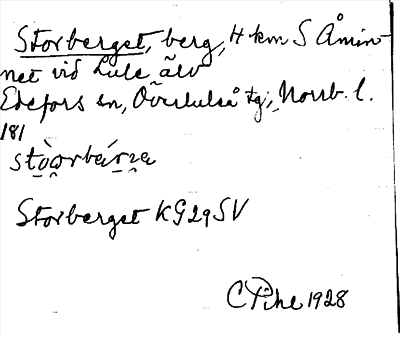 Storberget, berg, 4 km S Åmin-
net vid Lule älv
Edefors sn, Överluleå tg, Norrb. l.
181
Storberget KG29SV
C Pihl 1928